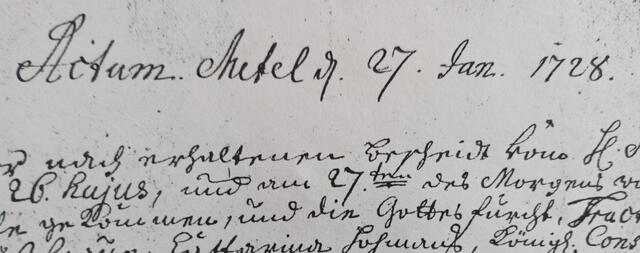 Actum. Metel d. 27. Jan. 1728.
nach erhaltenen bescheidt vom H.
26. hujus, und am 27.ten des Morgens
gekommen, und die Gottesfurcht,
Catharina Hohmans, Königl. Cons